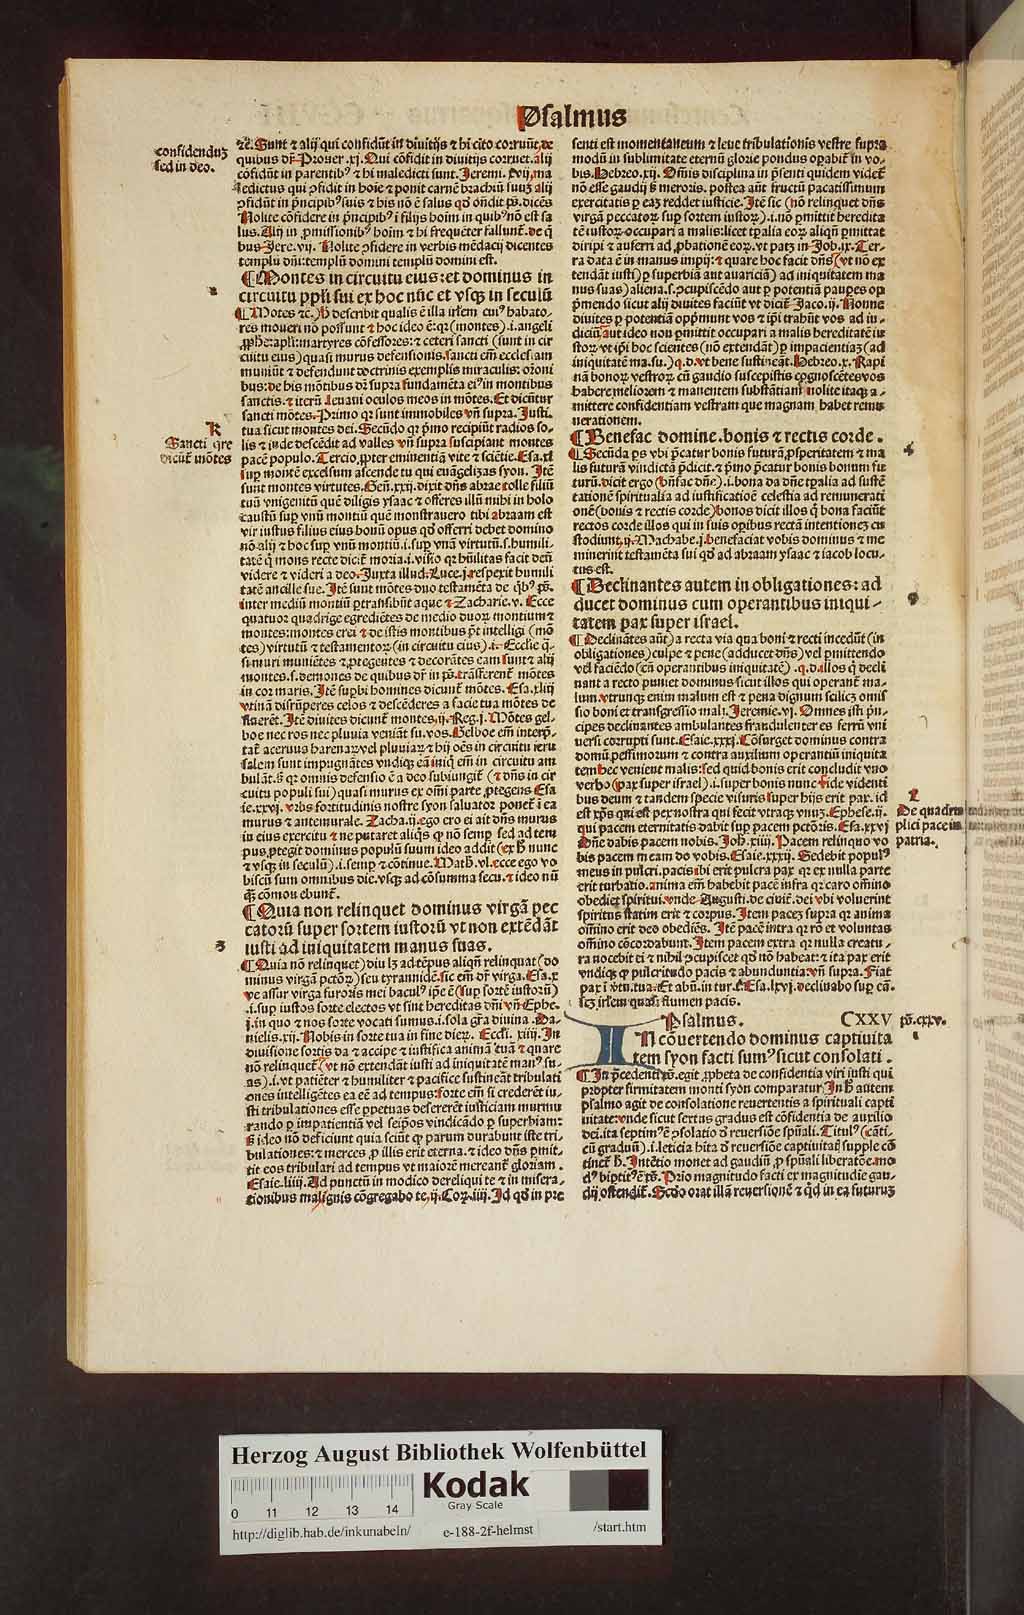 Psalmus
confidenduz
sed in deo.
⁊c̃. Sunt ⁊ alij qui confidũt in diuitijs ⁊ hi cito corruũt, de
quibus dr̃. Prouer .xj. Qui cõfidit in diuitijs corruet. alij
cõfidũt in parentib⁹ ⁊ hi maledicti sunt. Jeremi. xvij, ma
ledictus qui ꝯfidit in hoĩe ⁊ ponit carnẽ brachiũ suuz alij
ꝯfidũt in p̃ncipib⁹ suis ⁊ his nõ ẽ salus qď oñdit p̃s. dicẽs
Nolite cõfidere in p̃ncipib⁹ ĩ filijs hoĩm in quib⁹ nõ est sa
lus. Alij in ꝓmissionib⁹ hoĩm ⁊ hi frequẽter fallunt̃. de q̃
bus Jere. vij. Nolite ꝯfidere in verbis mẽdacij dicentes
templũ dñi: templũ domini templũ domini est.
¶ Montes in circuitu eius: et dominus in
circuitu pp̃li sui ex hoc nũc et vsq̃ in seculũ
¶ Mõtes ⁊c.) h̃ describit qualis ẽ illa irl̃em cui⁹ habato-
res moueri nõ possunt ⁊ hoc ideo ẽ: q̃ (montes) .i. angeli
ꝓphe: apl̃i: martyres cõfessores: ⁊ ceteri sancti (sunt in cir
cuitu eius) quasi murus defensionis. sancti em̃ ecclesiam
muniũt ⁊ defendunt doctrinis exemplis miraculis: or̃oni
bus: de his mõtibus dñ supra fundamẽta ei⁹ in montibus
sanctis. ⁊ iterũ Leuaui oculos meos in mõtes. Et dicũtur
sancti mõtes. Primo q̃ sunt immobiles vñ supra. Justi.
tua sicut montes dei. Secũdo q̃ p̃mo recipiũt radios so-
R
Sancti q̃re
dicũt̃ mõtes
lis ⁊ inde descẽdit ad valles vñ supra suscipiant montes
pacẽ populo. Tercio, ꝓpter eminentiã vite ⁊ sciẽtie. Esa. xl
sup montẽ excelsum ascende tu qui euãgelizas syon. Itẽ
sunt montes virtutes. Geñ. xxij. dixit dñs abrae tolle filiũ
tuũ vnigenitũ quẽ diligis ysaac ⁊ offeres illũ mihi in holo
caustũ sup vnũ montiũ quẽ monstrauero tibi abraam est
vir iustus filius eius bonũ opus qď offerri debet domino
nõ alij ⁊ hoc sup vnũ montiũ .i. sup vnã virtutũ .s. humili-
tatẽ q̃ mons recte dicit̃ moria .i. visio q̃ hũilitas facit deũ
videre ⁊ videri a deo. Juxta illud. Luce. j. respexit humili
tatẽ ancille sue. Itẽ sunt mõtes duo testamẽta de q̃b⁹ p̃s.
inter mediũ montiũ ꝑtransibũt aque ⁊ Zacharie. v. Ecce
quatuor quadrige egrediẽtes de medio duoꝝ montium ⁊
montes: montes erei ⁊ de istis montibus p̃t intelligi (mõ
tes) virtutũ ⁊ testamentoꝝ (in circuitu eius) .i. Ecclie q̃-
si muri muniẽtes ⁊ ꝓtegentes ⁊ decorãtes eam sunt ⁊ alij
montes .s. demones de quibus dr̃ in p̃s. trãsferent̃ mõtes
in cor maris. Itẽ supbi homines dicunt̃ mõtes. Esa. xliij
vtinã disrũperes celos ⁊ descẽderes a facie tua mõtes de
fluerẽt. Itẽ diuites dicunt̃ montes, ij. Reg. j. Mõtes gel-
boe nec ros nec pluuia veniãt su. vos. Gelboe em̃ interp̃-
tat̃ aceruus harenaꝝ vel pluuiaꝝ ⁊ hij oẽs in circuitu ieru
salem sunt impugnãtes vndiq̃ eã iniq̃ em̃ in circuitu am
bulãt. s̃ q̃ omnis defensio ẽ a deo subiungit̃ (⁊ dñs in cir
cuitu populi sui) quasi murus ex omi parte ꝓtegens Esa
ie. xxvi. vrbs fortitudinis nostre syon saluator ponet̃ ĩ ea
murus ⁊ antemurale. Zacha. ij. ego ero ei ait dñs murus
in eius exercitu ⁊ ne putaret aliq̃s q̃ nõ semp sed ad tem
pus, ꝓtegit dominus populũ suum ideo addit (ex h̃ nunc
⁊ vsq̃ in seculũ) .i. semp ⁊ cõtinue. Math. vl. ecce ego vo
biscũ sum omnibus die. vsq̃ ad cõsumma secu. ⁊ ideo nũ
q̃ cõmouebunt̃.
¶ Quia non relinquet dominus virgã pec
catorũ super sortem iustorũ vt non extẽdãt
iusti ad iniquitatem manus suas.
¶ Quia nõ relinquet) diu lz ad tẽpus aliq̃ñ relinquat (do
minus virgã pctõꝝ) seu tyrannidẽ. sic em̃ dr̃ virga. Esa. x
ve assur virga furoris mei bacul⁹ ip̃e ẽ (sup sortẽ iustorũ)
.i. sup iustos sorte electos vt sint hereditas dñi vñ Ephe.
j. in quo ⁊ nos sorte vocati sumus .i. sola gr̃a diuina. Da-
nielis. xij. Nobis in sorte tua in fine dierꝝ. Eccli. xiiij. In
diuisione sortis da ⁊ accipe ⁊ iustifica animã tuã ⁊ quare
nõ relinquet? vt nõ extendãt iusti ad iniquitatẽ man⁹ su-
as) .i. vt patiẽter ⁊ humiliter ⁊ pacifice sustineãt tribulati
ones intelligẽtes ea eẽ ad tempus: forte em̃ si crederẽt iu-
sti tribulationes esse ꝑpetuas desererẽt iusticiam murmu
rando ꝑ impatientiã vel seip̃os vindicãdo ꝑ superbiam:
s̃ ideo nõ deficiunt quia sciũt q̃ parum durabunt iste tri-
bulationes: ⁊ merces ꝓ illis erit eterna. ⁊ ideo dñs p̃mit-
tit eos tribulari ad tempus vt maiorẽ mereant̃ gloriam.
Esaie. liiij. Ad punctũ in modico dereliqui te ⁊ in misera-
tionibus malignis cõgregabo te, ij. Coꝝ. iiij. Id qď in pre
senti est momentaneum ⁊ leue tribulationis vestre supra
modũ in sublimitate eternũ glorie pondus oꝑabit̃ in vo-
bis. Hebreo. xij. Om̃is disciplina in p̃senti quidem videt̃
nõ esse gaudij s̃ meroris. postea aũt fructũ pacatissimum
exercitatis ꝑ eaz reddet iusticie. Itẽ sic (nõ relinquet dñs
virgã peccatoꝝ sup sortem iustoꝝ) .i. nõ ꝑmittit heredita
tẽ iustoꝝ occupari a malis: licet tp̃alia eoꝝ aliqñ ꝑmittat
diripi ⁊ auferri ad ꝓbationẽ eoꝝ. vt patz in Job. ix. Ter-
ra data ẽ in manus impij: ⁊ quare hoc facit dñs? vt nõ ex
tendãt iusti) ꝑ superbiã aut auariciã) ad iniquitatem ma
nus suas) aliena .s. ꝯcupiscẽdo aut ꝑ potentiã pauꝑes op
p̃mendo sicut alij diuites faciũt vt dicit̃ Jaco. ij. Nonne
diuites ꝑ potentiã opp̃munt vos ⁊ ip̃i trahũt vos ad iu-
diciũ, aut ideo non ꝑmittit occupari a malis hereditatẽ iu
stoꝝ vt ip̃i hoc scientes (nõ extendãt) ꝑ impacientiaz (ad
iniquitatẽ ma. su.) q. d. vt bene sustineãt. Hebreo. x. Rapi
nã bonoꝝ vestroꝝ cũ gaudio suscepistis cognoscẽtes vos
habere meliorem ⁊ manentem substãtiam nolite itaq̃ a-
mittere confidentiam vestram que magnam habet remu
nerationem.
¶ Benefac domine. bonis ⁊ rectis corde.
¶ Secũda p̃s vbi p̃catur bonis futurã ꝓsperitatem ⁊ ma
lis futurã vindictã p̃dicit. ⁊ p̃mo p̃catur bonis bonum fu
turũ. dicit ergo (bñfac dñe) .i. bona da dñe tp̃alia ad sustẽ
tationẽ spiritualia ad iustificatioẽ celestia ad remunerati
onẽ (bonis ⁊ rectis corde) bonos dicit illos q̃ bona faciũt
rectos corde illos qui in suis oꝑibus rectã intentionez cu
stodiunt, ij. Machabe. j. benefaciat vobis dominus ⁊ me
minerint̃ testamẽta sui qď ad abraam ysaac ⁊ iacob locu-
tus est.
¶ Declinantes autem in obligationes: ad
ducet dominus cum operantibus iniqui-
tatem pax super israel.
¶ Declinãtes aũt) a recta via qua boni ⁊ recti incedũt (in
obligationes) culpe ⁊ pene (adducet dñs) vel ꝑmittendo
vel faciẽdo (cũ operantibus iniquitatẽ) .q.d. illos q̃ decli
nant a recto puniet dominus sicut illos qui operant̃ ma-
lum. vtrunq̃ enim malum est ⁊ pena dignum scilicz omis
sio boni et transgressio mali. Jeremie. vj. Omnes isti p̃n-
cipes declinantes ambulantes fraudulenter es ferrũ vni
uersi corrupti sunt. Esaie. xxxj. Cõsurget dominus contra
domũ pessimorum ⁊ contra auxilium operantiũ iniquita
tem hec venient malis: sed quid bonis erit concludit vno
verbo (pax super israel) .i. super bonis nunc fide videnti
bus deum ⁊ tandem specie visuris super hijs erit pax. id
L
De quadru
plici pace in
patria.
est xp̃s qui est pex nostra qui fecit vtraq̃ vnuz. Ephese. ij.
qui pacem eternitatis dabit sup pacem pctõris. Esa. xxvj
Dñe dabis pacem nobis. Joh. xiiij. Pacem relinquo vo
bis pacem meam do vobis. Esaie. xxxij. Sedebit popul⁹
meus in pulcri. pacis ibi erit pulcra pax q̃ ex nulla parte
erit turbatio. anima em̃ habebit pacẽ infra q̃ caro om̃ino
obediet spiritui. vnde Augusti. de ciuit. dei vbi voluerint
spiritus statim erit ⁊ corpus. Item pacez supra q̃ anima
om̃ino erit deo obediẽs. Itẽ pacẽ intra q̃ rõ et voluntas
om̃ino cõcordabunt. Item pacem extra q̃ nulla creatu-
ra nocebit ei ⁊ nihil ꝯcupiscet qď nõ habeat: ⁊ ita pax erit
vndiq̃ ꝙ pulcritudo pacis ⁊ abunduntia: vñ supra. Fiat
pax ĩ vtu. tua. Et abũ. in tur. ⁊ Esa. lxvj. declinabo sup eã.
scz irl̃em quasi flumen pacis.
Psalmus. CXXV
p̃s. cxxv.
IN cõuertendo dominus captiuita
tem syon facti sum⁹ sicut consolati.
¶ In p̃cedenti p̃s. egit ꝓpheta de confidentia viri iusti qui
propter firmitatem monti syon comparatur. In h̃ autem
psalmo agit de consolatione reuertentis a spirituali capti
uitate: vnde sicut sextus gradus est cõfidentia de auxilio
dei. ita septim⁹ ẽ ꝯsolatio ď reuersiõe sp̃uali. Titul⁹ (cãti-
cũ graduũ) .i. leticia hĩta ď reuersiõe captiuitatis supple cõ
tinet̃ h̃. Intẽtio monet ad gaudiũ ꝓ sp̃uali liberatõe. mo
d⁹ biptit⁹ ẽ p̃s. Prio magnitudo facti ex magnitudie gau-
dij ostendit̃. Scďo orat illã reuersionẽ ⁊ q̃d in ea futuruz
Herzog August Bibliothek Wolfenbüttel
Kodak
Gray Scale
0 11 12 13 14
http://diglib.hab.de/inkunabeln/ e-188-2f-helmst /start.htm